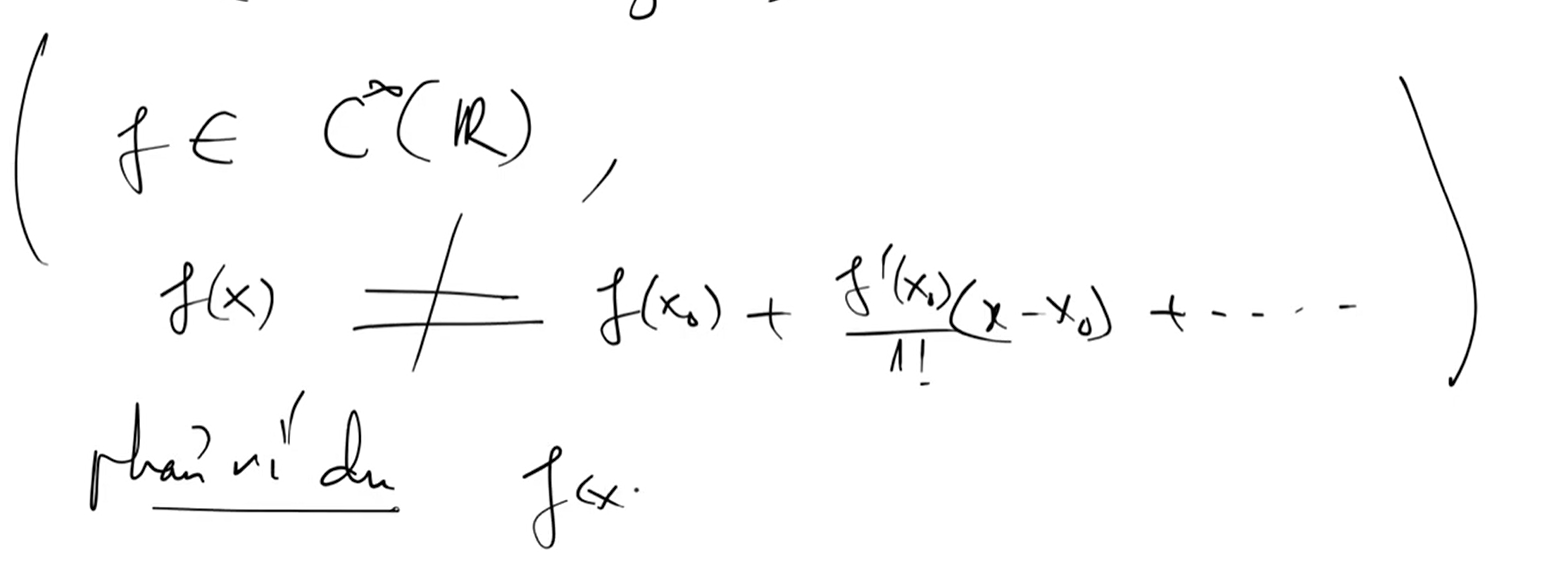 ( f ∈ C^∞(ℝ) ,
f(x) ≠ f(x₀) + f'(x₀)(x - x₀) / 1! + ····· )
phản ví dụ f(x